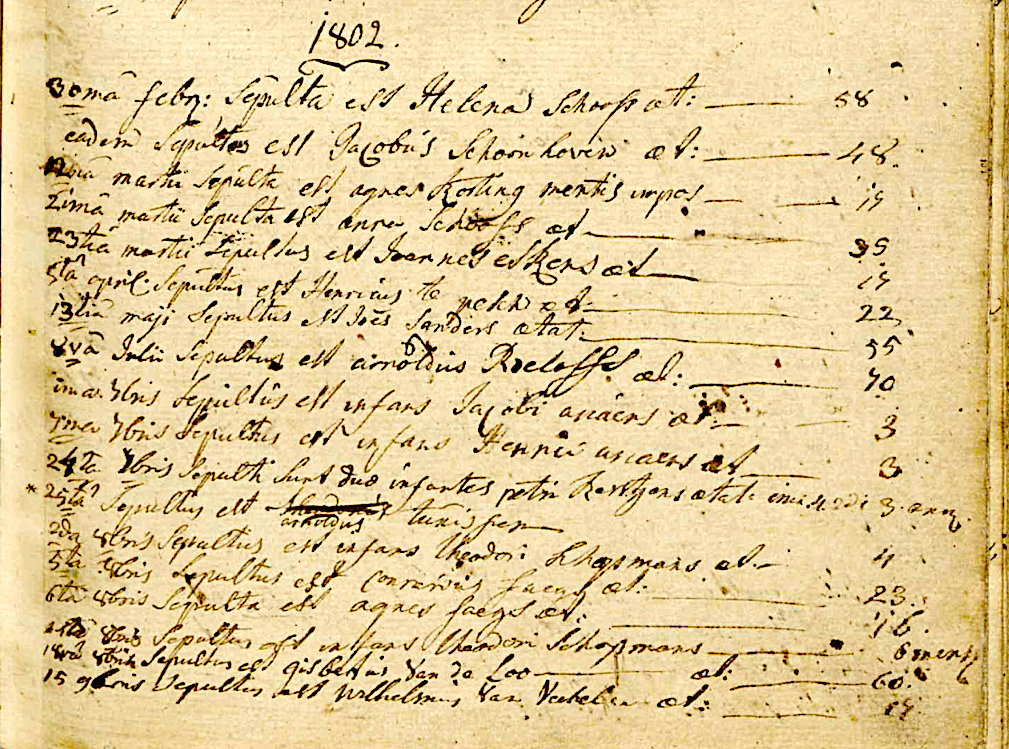 1802.
30mâ febr: Sepulta est Helena Schoofs æt: 58
eadem Sepultus est Jacobus Schoonhoven æt: 48.
martii Sepulta est agnes Korting mentis impos 19
21mâ martii Sepulta est anna Schoofs æt 35
23tiâ martii Sepultus est Joannes esKens æt 19
5tâ april. Sepultus est Henricus te æt. 22
13tiâ maji Sepultus est Joês Sanders ætat. 55
8vâ Julii Sepultus est arnoldus Roeloffs æt: 70
imâ 7bris Sepultus est infans Jacobi ariaens æt. 3
7bris Sepultus est infans Henrici ariaens æt 3
24ta 7bris Sepulti Sunt duo infantes petri Kerstgens ætat: 2di 3.
* 25tâ Sepultus est arnoldus
2da 8bris Sepultus est infans theodori Schopmans æt. 4
5ta 8bris Sepultus est faens æt: 23.
6ta 8bris Sepulta est agnes faens æt: 16.
8bris Sepultus est infans theodori Schopmans 6 mens
18va 8bris Sepultus est gisbertus Van de Loo æt: 60.
15 9bris Sepultus est Wilhelmus Van æt: 19